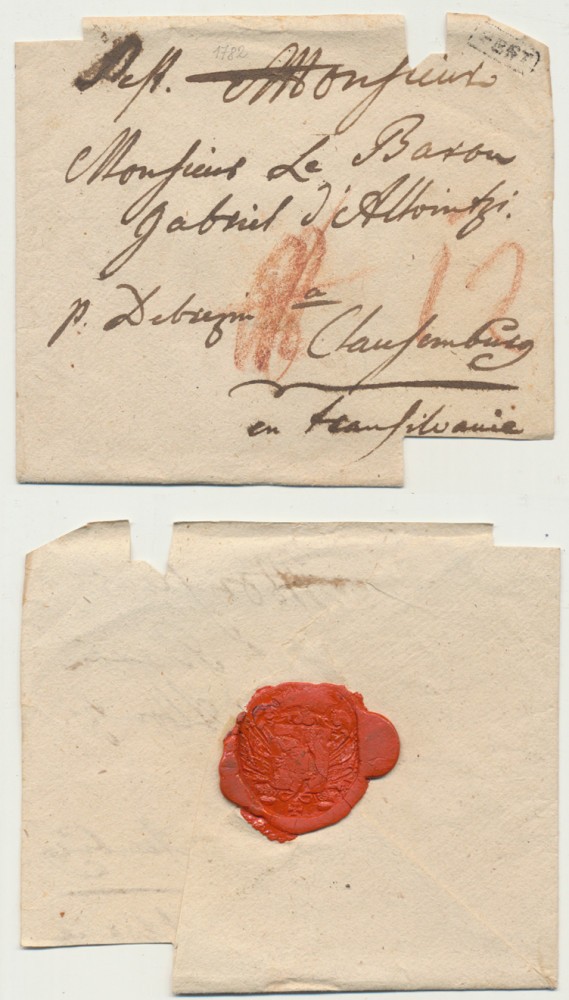 1782
PEST
Pest. Monsieur
Monsieur Le Baron
Gabriel d'Alvintzi.
p. Debrezin a
Clausemburg
en transilvanie
12